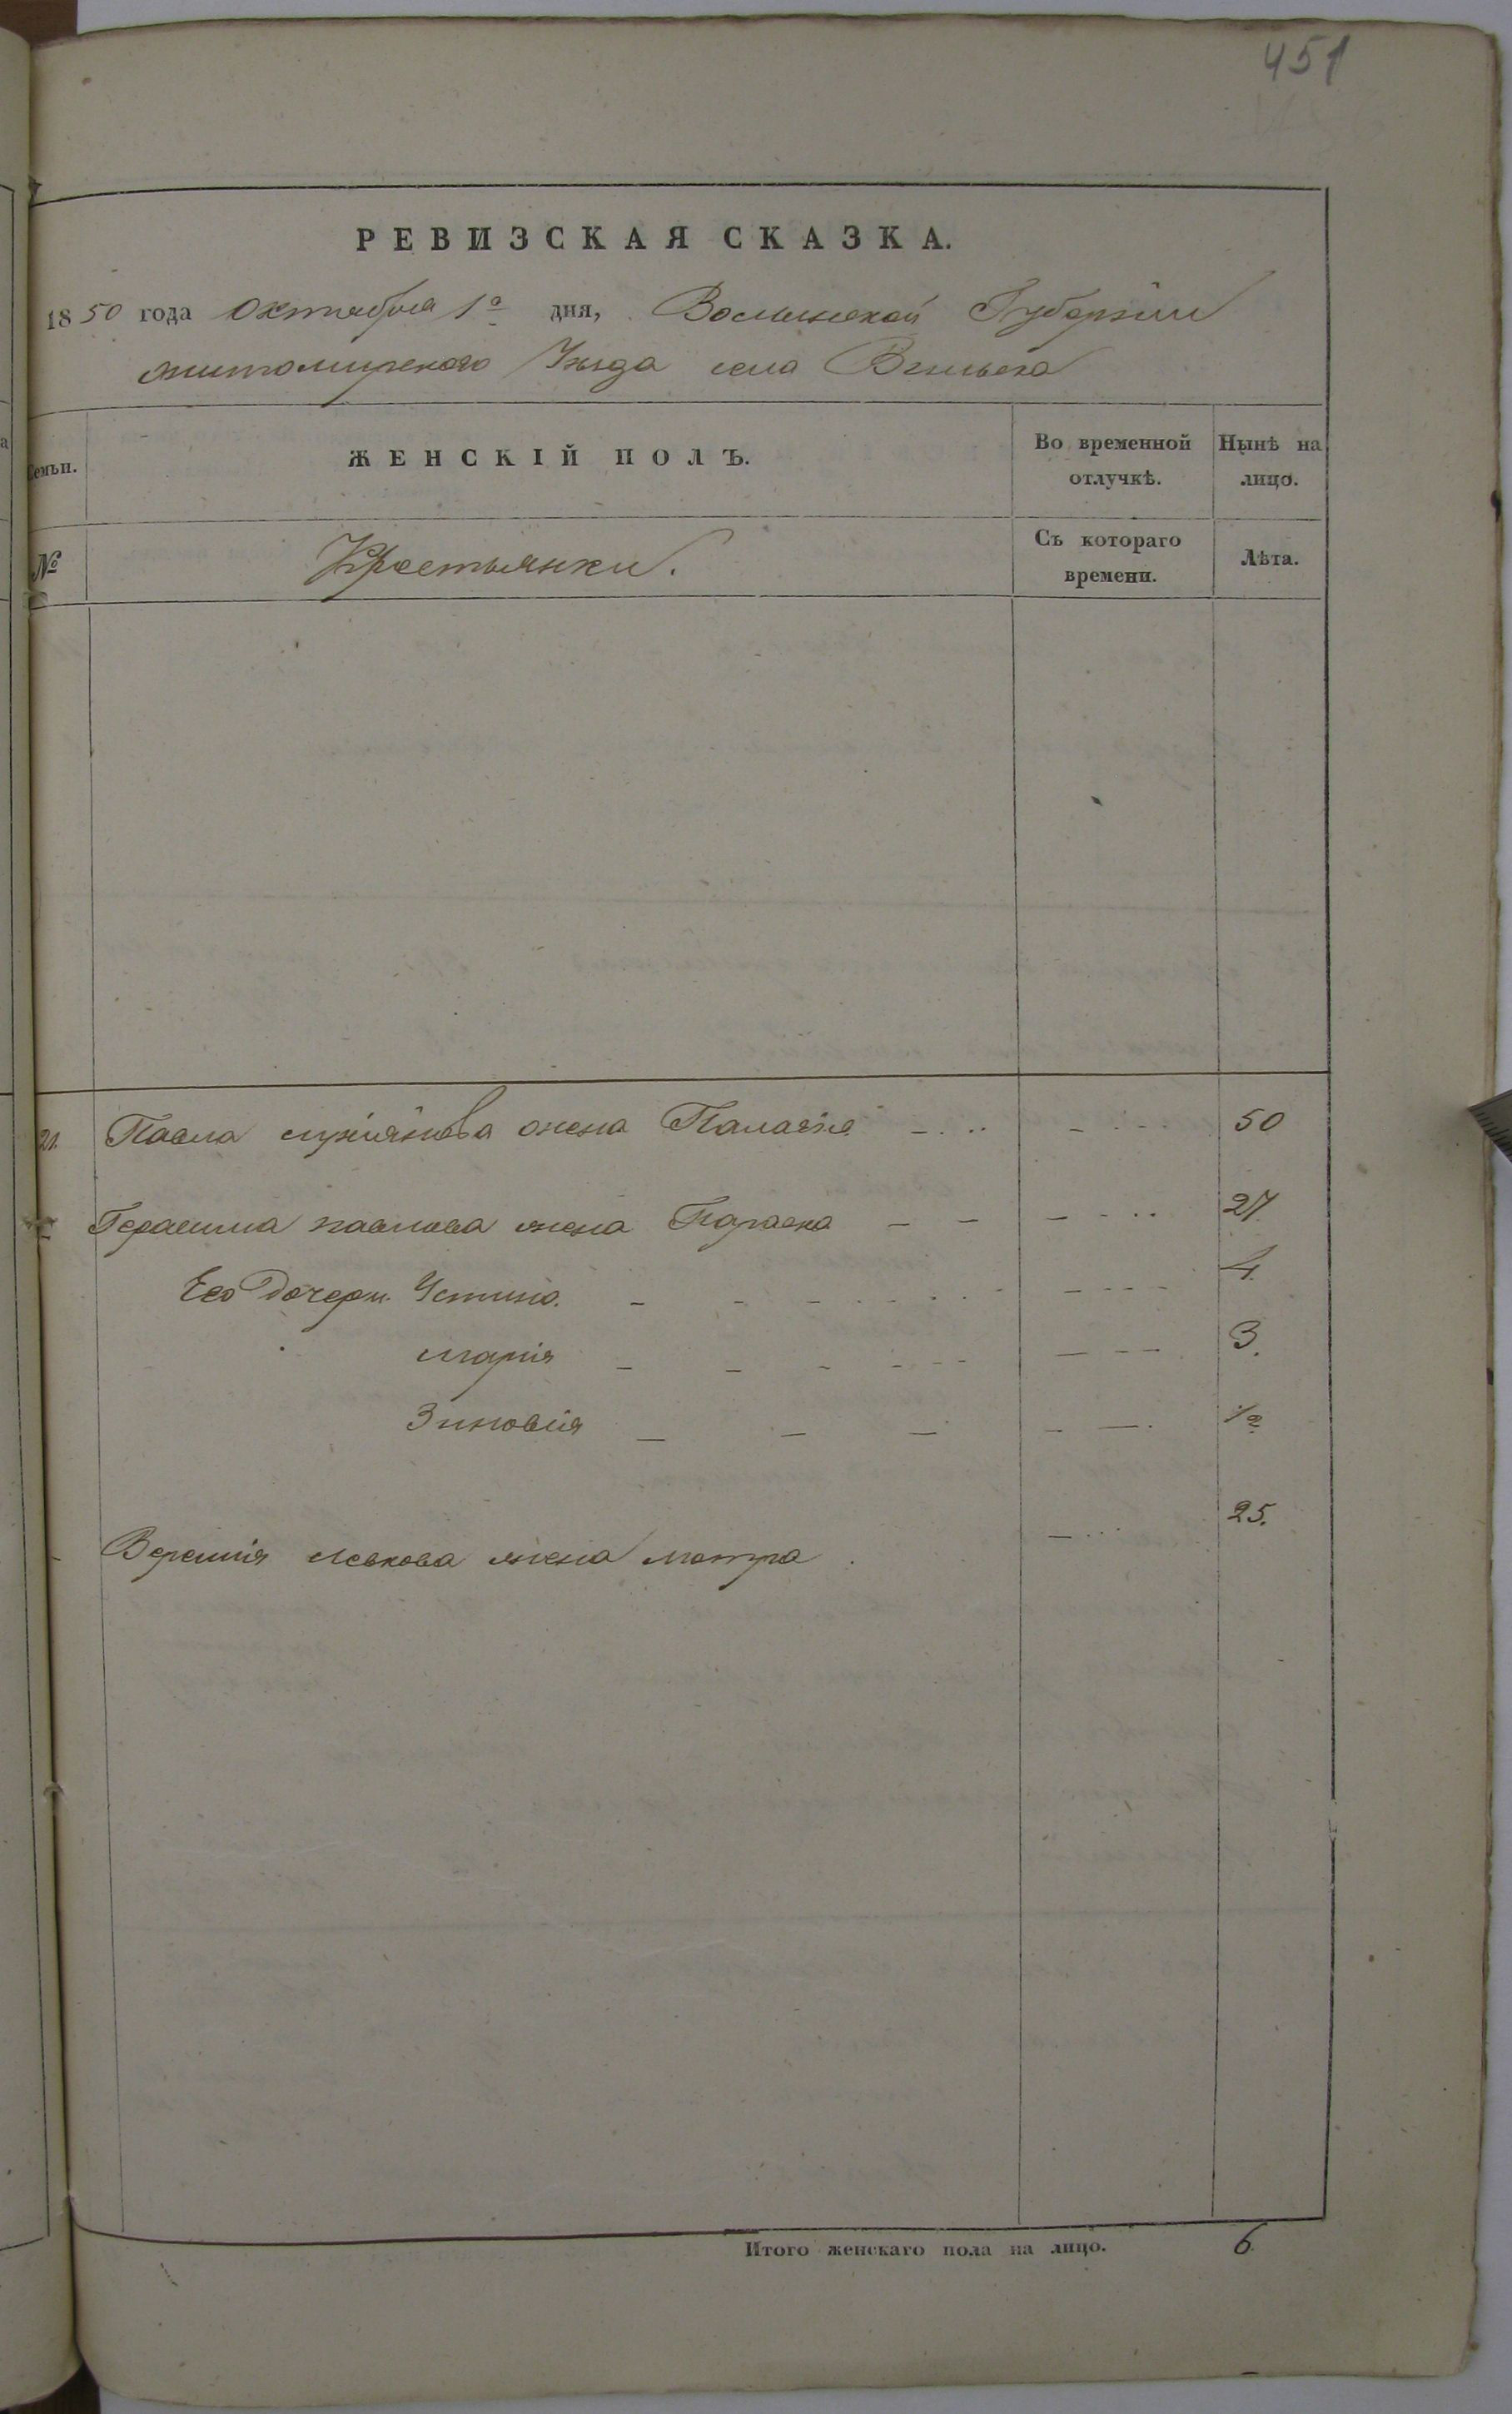 451
РЕВИЗСКАЯ СКАЗКА.
1850 года Октября 1го дня, Волынской Губернии
житомирского Уезда села Вильска
Семьи. ЖЕНСКІЙ ПОЛЪ. Во временной отлучкѣ. Нынѣ на лицо.
№ Крестьянки. Съ котораго времени. Лѣта.
21. Павла жена Палагія 50
Герасима павлова жена Параска 27.
Его дочери Устина. 4.
марія 3.
Зиновія 1/2
левкова жена мотра 25.
Итого женскаго пола на лицо. 6